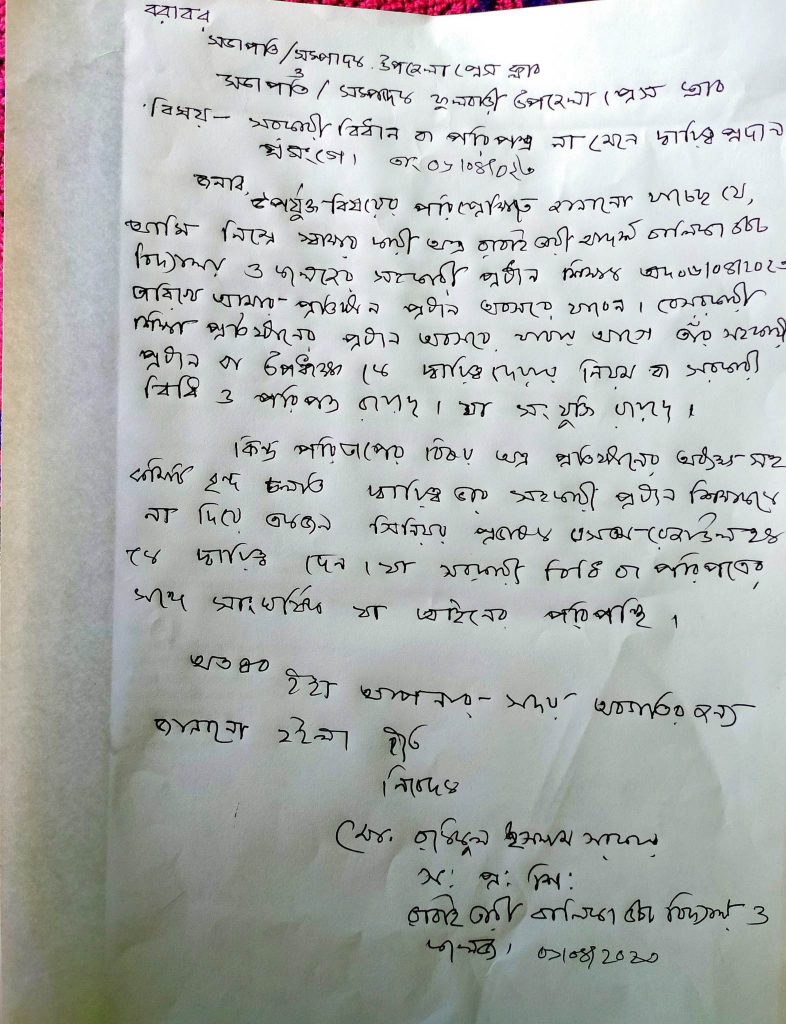 বরাবর,
সভাপতি/সম্পাদক উপজেলা প্রেস ক্লাব
ও
সভাপতি / সম্পাদক ফুলবাড়ী উপজেলা প্রেস ক্লাব
বিষয়- সরকারী বিধান বা পরিপত্র না মেনে দায়িত্ব প্রদান
প্রসংগে।
জনাব,
উপর্যুক্ত বিষয়ের পরিপ্রেক্ষিতে জানানো যাচ্ছে যে,
আমি নিম্নে স্বাক্ষর কারী অত্র আদর্শ বালিকা উচ্চ
বিদ্যালয় ও কলেজের সহকারী প্রধান শিক্ষক
তারিখে আমার প্রতিষ্ঠান প্রধান অবসরে যাবেন। বেসরকারী
শিক্ষা প্রতিষ্ঠানের প্রধান অবসরে যাবার আগে তাঁর সহকারী
প্রধান বা উপাধ্যক্ষ কে দায়িত্ব দেওয়ার নিয়ম বা সরকারী
বিধি ও পরিপত্র রয়েছে। যা সংযুক্তি রয়েছে।
কিন্তু পরিতাপের বিষয় অত্র প্রতিষ্ঠানের অধ্যক্ষ সহ
কমিটি বৃন্দ দায়িত্ব ভার সহকারী প্রধান শিক্ষককে
না দিয়ে একজন সিনিয়র প্রভাষক
কে দায়িত্ব দেন। যা সরকারী বিধি বা পরিপত্রের
সঙ্গে সাংঘর্ষিক যা আইনের পরিপন্থি।
অতএব ইহা আপনার সদয় অবগতির জন্য
জানানো হইলো ইতি
নিবেদক
মো. ইসলাম সরকার
স: প্র: শি:
বালিকা উচ্চ বিদ্যালয় ও
কলেজ।